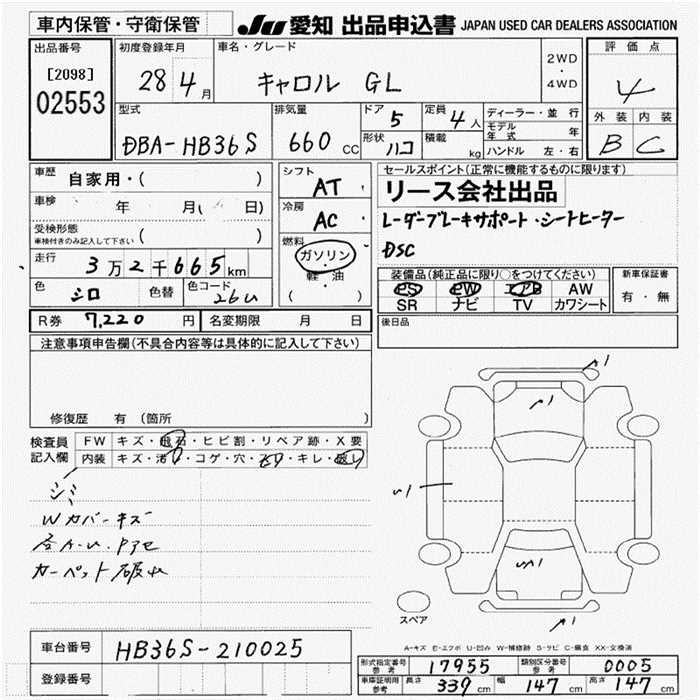 車内保管・守衛保管
JU 愛知 出品申込書 JAPAN USED CAR DEALERS ASSOCIATION
出品番号
[2098]
02553
初度登録年月
28年4月
車名・グレード
キャロル GL
2WD
・
4WD
評価点
4
外装 内装
B C
型式
DBA-HB36S
排気量
660 cc
ドア 5
形状 ハコ
定員 4人
積載 kg
ディーラー・並行
モデル年式 年
ハンドル 左・右
車歴 自家用・( )
車検 年 月( 日)
受検形態
車検付きのみ記入して下さい ( )
走行 3万2千665km
色 シロ 色替 色コード 26U
シフト AT
冷房 AC
燃料
ガソリン
・
軽油
( )
セールスポイント(正常に機能するものに限ります)
リース会社出品
レーダーブレーキサポート・シートヒーター
DSC
装備品(純正品に限り○をつけてください)
PS PW エアB AW
SR ナビ TV カワシート
新車保証書
有・無
R券 7,220 円 名変期限 月 日
後日品
注意事項申告欄(不具合内容等は具体的に記入して下さい)
修復歴 有(箇所 )
検査員記入欄
FW キズ・飛石・ヒビ割・リペア跡・X要
内装 キズ・汚れ・コゲ・穴・スレ・キレ・破れ
シミ
Wカバーキズ
カーペット破れ
A1
A1
A1
U1
A1
スペア
A-キズ E-エクボ U-凹み W-補修跡 S-サビ C-腐食 XX-交換済
車台番号 HB36S-210025
登録番号
形式指定番号 参考 17955 類別区分番号 参考 0005
車庫証明用 参考 長さ 339cm 幅 147cm 高さ 147cm